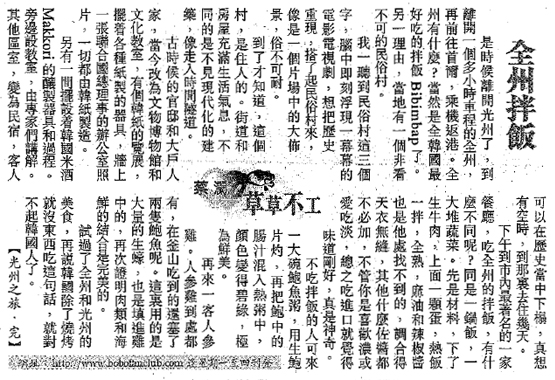 全州拌飯
是時候離開光州了,到
離開一個多小時車程的全州,
再前往首爾,乘機返港。全
州有什麼?當然是全韓國最
好吃的拌飯Bibimbap了。
另一理由,當地有一個非看
不可的民俗村。
我一聽到民俗村這三個
字,腦中即刻浮現一幕幕的
電影電視劇,想把歷史
重現,搭了起民俗村來,
像是一個片場中的大佈
景,俗不可耐。
到了才知道,這個
村,是住人的。街道和
房屋充滿生活氣息,不
同的是不見現代化的建
築,像走入時間隧道。
古時候的官邸和大戶人
家,當今改為文物博物館和
文化教室,有個韓紙的展覽,
擺着各種紙製的器具,牆上
一張聯合國總理事的辦公室照
片,一切都由韓紙製造。
另有一間擺設着韓國米酒
Makkori的釀製器具和過程。
旁邊設教室,由專家們講解。
其他區室,變為民宿,客人
草草不工
蔡瀾
可以在歷史當中下榻,真想
有空時,到那裏去住幾天。
下午到市內最著名的一家
餐廳,吃全州的拌飯,有什
麼不同呢?同是一鍋飯,一
大堆蔬菜。先是材料,下了
生牛肉,上面一顆蛋,熱飯
一拌,全熟,麻油和辣椒醬
也是他處找不到的,調合得
天衣無縫,其他什麼佐醬都
不必加,不管你是喜歡濃或
愛吃淡,總之吃進口就覺得
味道剛好,真是神奇。
不吃拌飯的人可來
一大碗鮑魚粥,用生鮑
片灼,再把鮑中的
腸汁混入熱粥中,
顏色變得碧綠,極
為鮮美。
再來一客人參
雞。人參雞到處都
有,在釜山吃到的還塞了
兩隻鮑魚呢。這裏用的是
大量的生蠔,也是填進雞
中的,再次證明肉類和海
鮮的結合是完美的。
試過了全州和光州的
美食,再說韓國除了燒烤
就沒東西吃這句話,就對
不起韓國人了。
【光州之旅·完】
http://www.bobofanclub.com